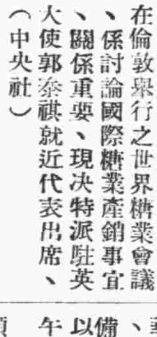 在倫敦舉行之世界糖業會議
、係討論國際糖業產銷事宜
、關係重要、現決特派駐英
大使郭泰祺就近代表出席、
（中央社）
、備以午